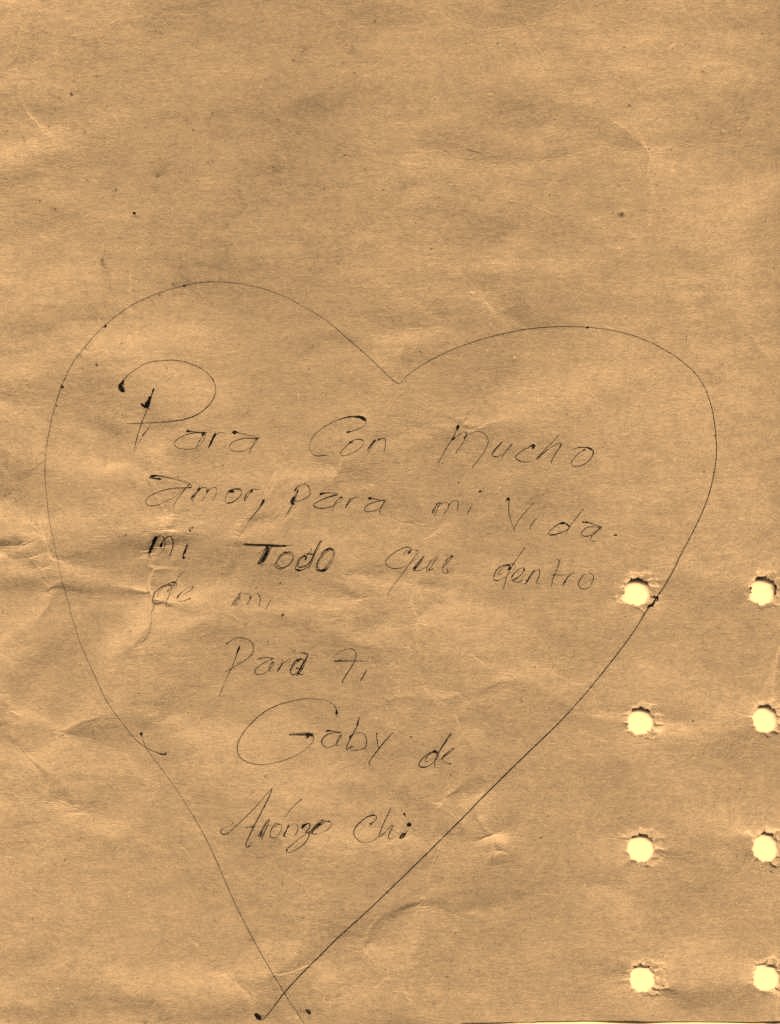 Para Con Mucho
amor, para mi Vida.
mi Todo que dentro
de mi.
Para ti
Gaby de
Chi